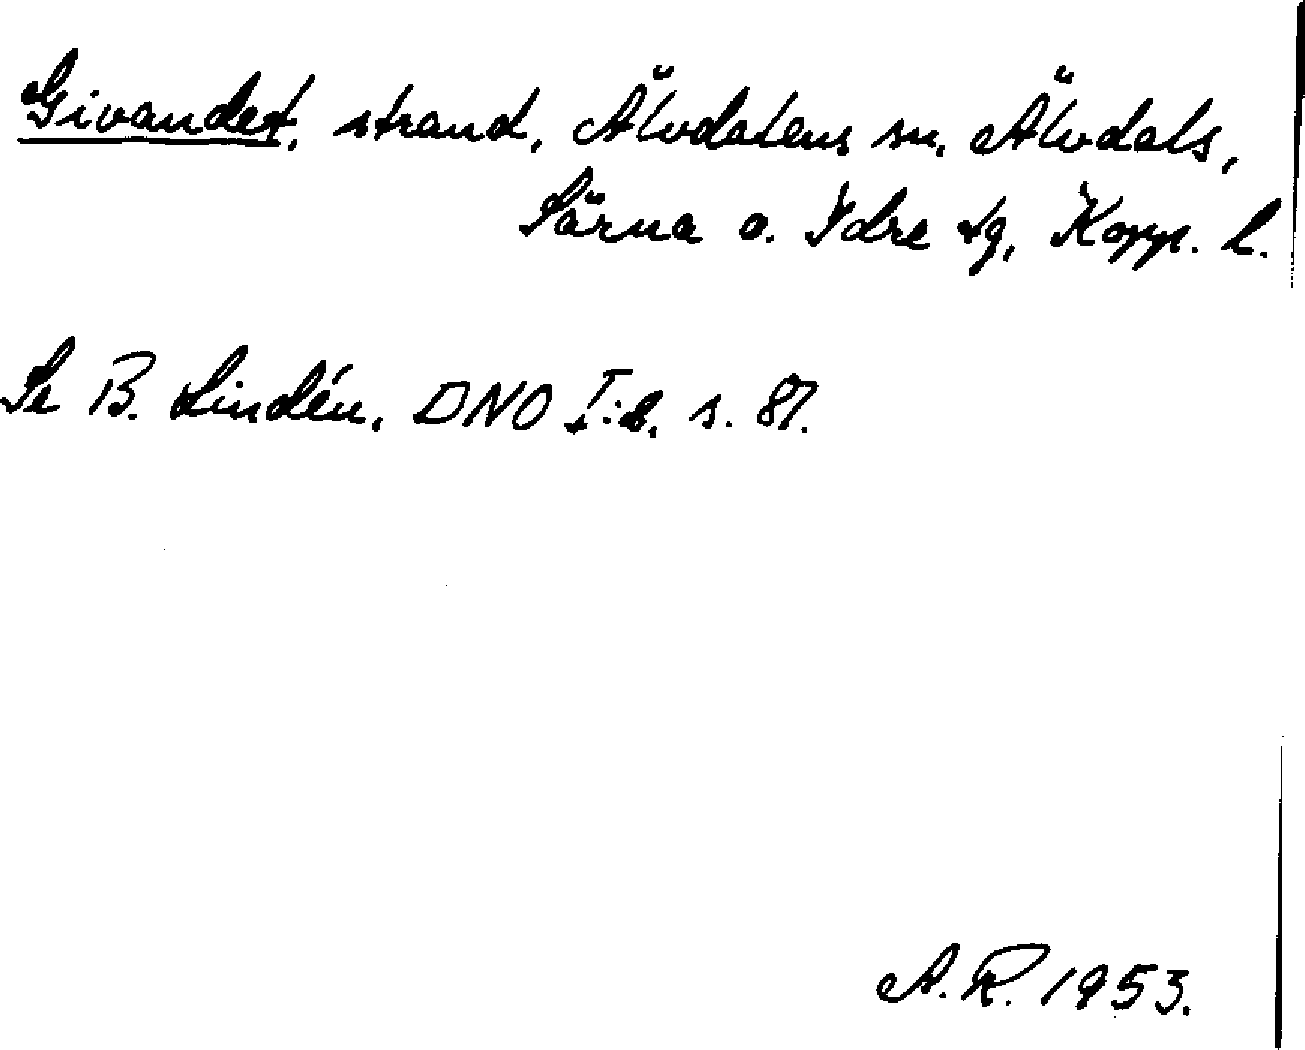 Givandet, strand, Älvdalens sn, Älvdals,
Särna o. Idre tg, Kopp. l.
Se B. Lindén, DNO I:2, s. 87.
A.R. 1953.